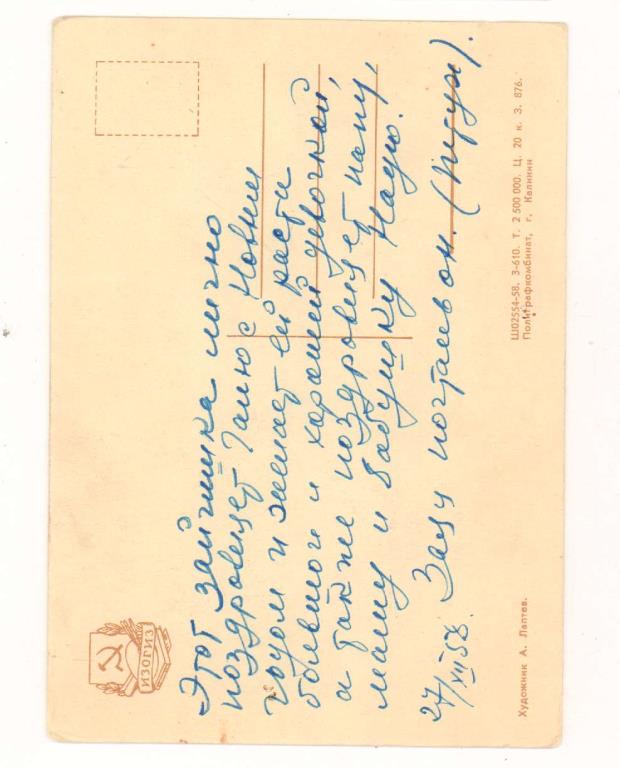 ИЗОГИЗ
Этот зайчишка лично
поздровляет Танюс с Новым
годом и желает ей расти
большой и хорошей девочкой,
а также поздровляет папу,
маму и бабушку Надю.
27/XII 58. Заяц почтальон.
Художник А. Лаптев.
Ш02554-58. З-610. Т. 2 500 000. Ц. 20 к. З. 876.
Полиграфкомбинат, г. Калинин